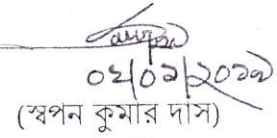 ০২/০১/২০১৯
(স্বপন কুমার দাস)